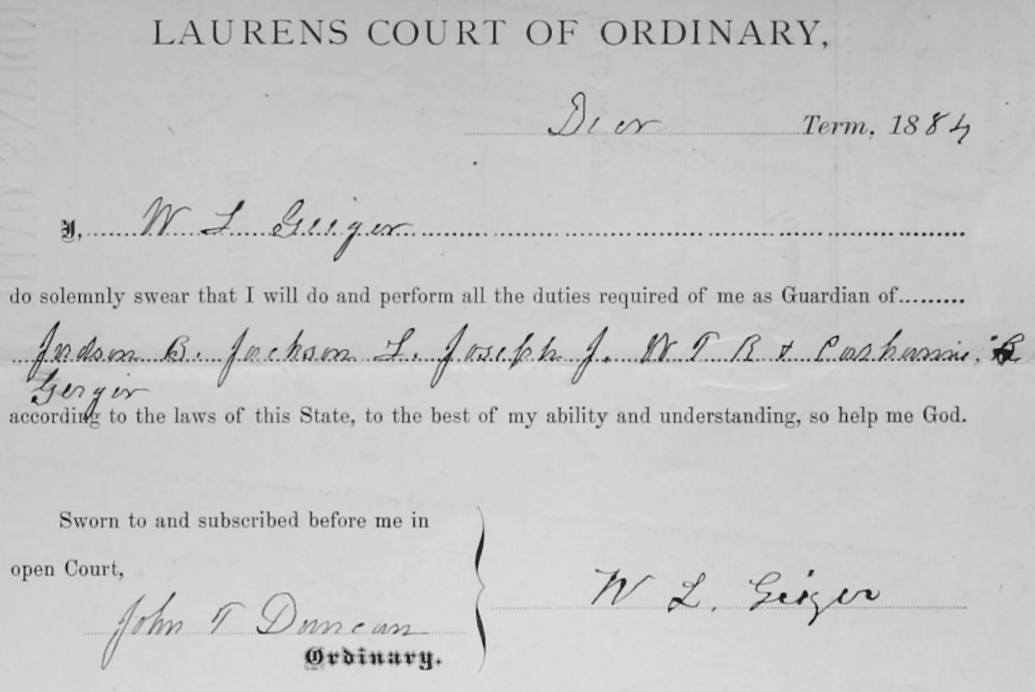 LAURENS COURT OF ORDINARY,
Decr Term, 1884
I, W L Geiger
do solemnly swear that I will do and perform all the duties required of me as Guardian of
Judson B. Jackson L. Joseph J. W T R &
Geiger
according to the laws of this State, to the best of my ability and understanding, so help me God.
Sworn to and subscribed before me in
open Court,
W L. Geiger
John T Duncan
Ordinary.